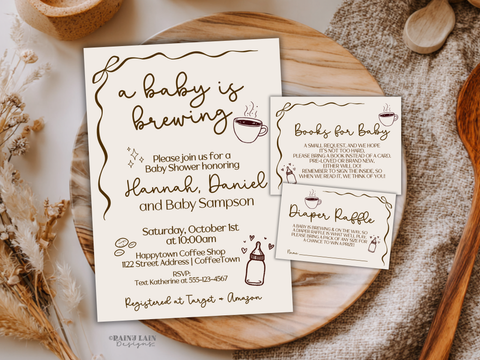 a baby is
brewing
Please join us for a
Baby Shower honoring
Hannah, Daniel
and Baby Sampson
Saturday, October 1st
at 10:00am
Happytown Coffee Shop
1122 Street, Address | CoffeeTown
RSVP:
Text Katherine at 555-123-4567
Registered at Target + Amazon
Books for Baby
A SMALL REQUEST, AND WE HOPE
IT'S NOT TOO HARD,
PLEASE BRING A BOOK INSTEAD OF A CARD.
PRE-LOVED OR BRAND NEW,
EITHER WILL DO!
REMEMBER TO SIGN THE INSIDE, SO
WHEN WE READ IT, WE THINK OF YOU!
Diaper Raffle
A BABY IS BREWING & ON THE WAY, SO
A DIAPER RAFFLE IS WHAT WE'LL PLAY.
PLEASE BRING A PACK OF ANY SIZE FOR
A CHANCE TO WIN A PRIZE!
Name:
Designs